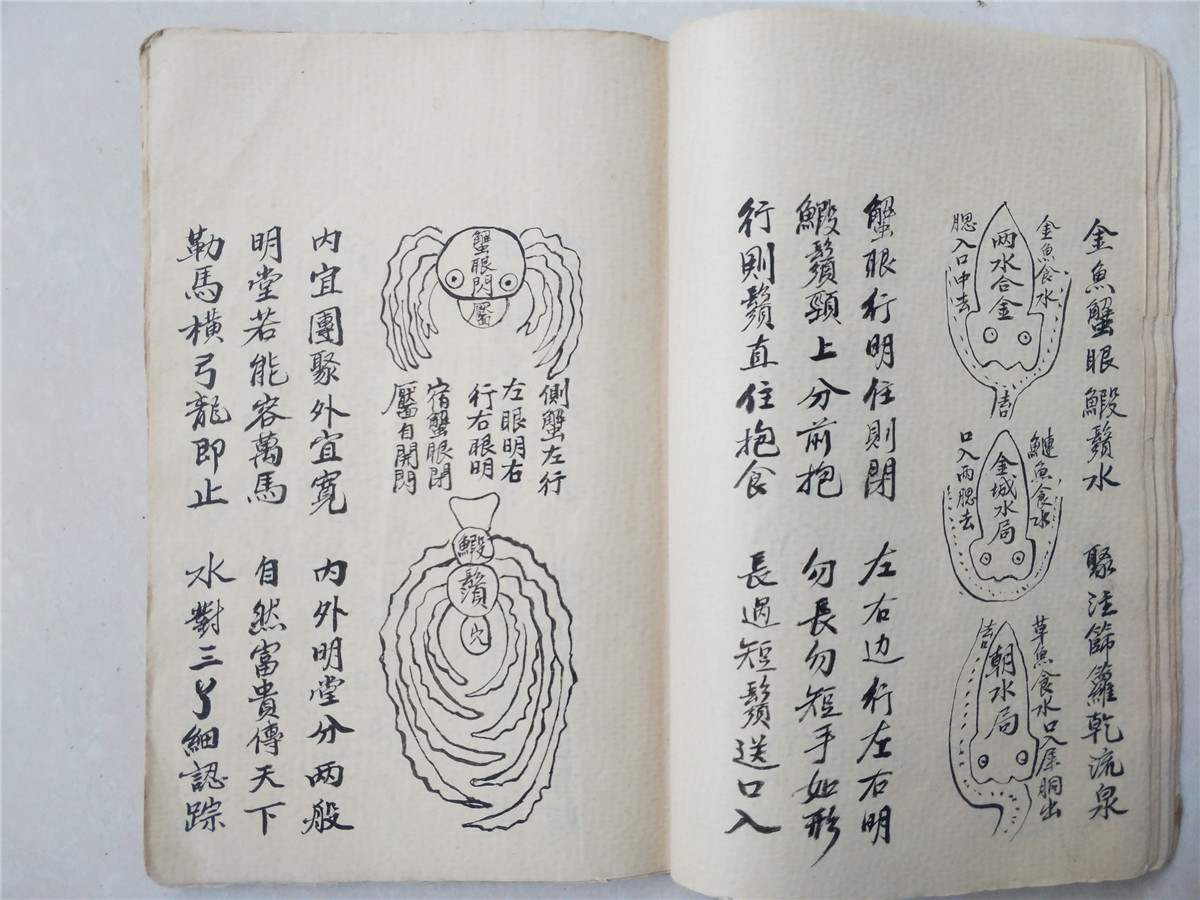 金魚蟹眼鰕鬚水 聚注篩籮乾流泉
金魚食水
腮入口冲去
两水合金
吉
鰱魚食水
口入两腮去
金城水局
草魚食水口入屎胴出
吉
朝水局
蟹眼行明住則閉 左右边行左右明
鰕鬚頸上分前抱 勿長勿短手如形
行則鬚直住抱食 長過短鬚送口入
蟹眼閃
靨
側蟹左行
左眼明右
行右眼明
宿蟹眼閉
靨自開閃
鰕
鬚
穴
内宜團聚外宜寬 内外明堂分两般
明堂若能容萬馬 自然富貴傳天下
勒馬橫弓龍即止 水對三丫細認踪